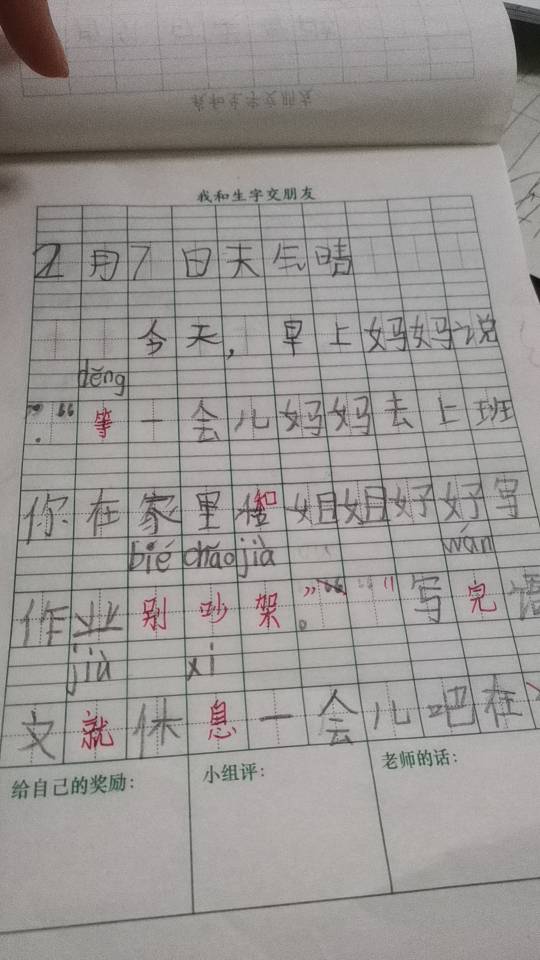 我和生字交朋友
2月7日天气晴
今天,早上妈妈说
děng
:“等一会儿妈妈去上班
你在家里和姐姐好好写
bié chǎo jià wán
作业别吵架。”“写完语
jiù xi
文就休息一会儿吧在
给自己的奖励: 小组评: 老师的话: